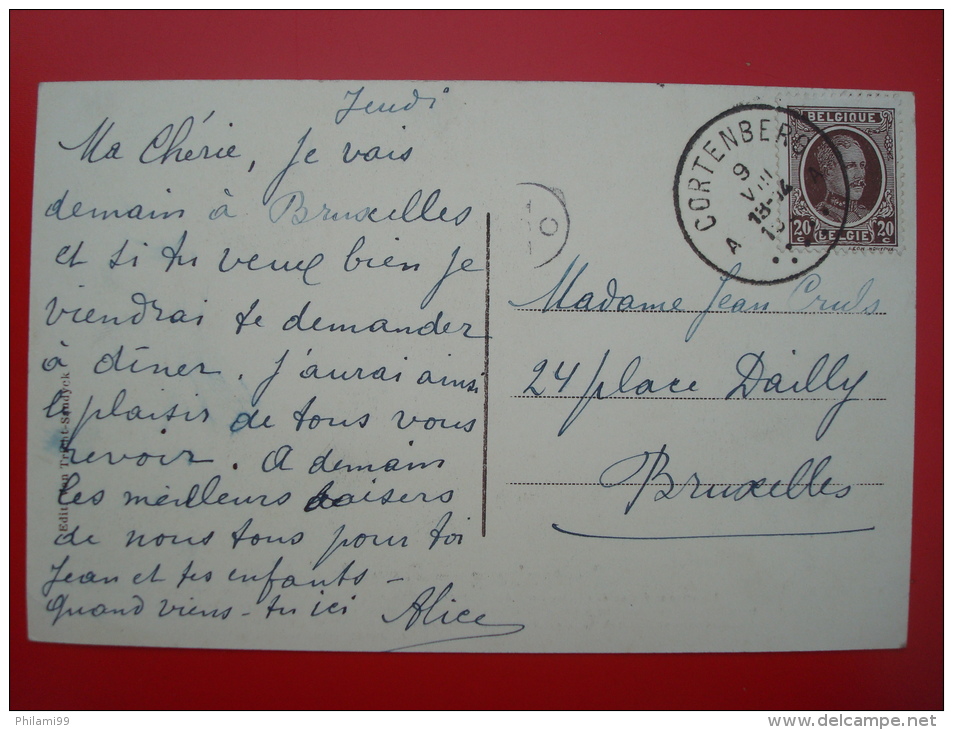 Jeudi
Ma Chérie, je vais
demain à Bruxelles
et si tu veux bien je
viendrai te demander
à dîner. J'aurai ainsi
le plaisir de tous vous
revoir. A demain
les meilleurs baisers
de nous tous pour toi
Jean et tes enfants -
Quand viens-tu ici
Alice
CORTENBERG
9
VIII
13-14
A
BELGIQUE
20c 20c
BELGIE
Madame Jean Cruls
24 place Dailly
Bruxelles
Philami99
delcampe.net